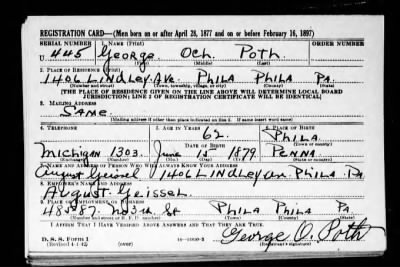 REGISTRATION CARD—(Men born on or after April 28, 1877 and on or before February 16, 1897)
SERIAL NUMBER 1. NAME (Print) ORDER NUMBER
U 445 George Och Poth
(First) (Middle) (Last)
2. PLACE OF RESIDENCE (Print)
1406 Lindley Ave Phila Phila Pa.
(Number and street) (Town, township, village, or city) (County) (State)
[THE PLACE OF RESIDENCE GIVEN ON THE LINE ABOVE WILL DETERMINE LOCAL BOARD
JURISDICTION; LINE 2 OF REGISTRATION CERTIFICATE WILL BE IDENTICAL]
3. MAILING ADDRESS
Same
(Mailing address if other than place indicated on line 2. If same insert word same)
4. TELEPHONE 5. AGE IN YEARS 6. PLACE OF BIRTH
62 Phila
DATE OF BIRTH (Town or county)
Michigan 1303 June 15 1879 Penna
(Exchange) (Number) (Mo.) (Day) (Yr.) (State or country)
7. NAME AND ADDRESS OF PERSON WHO WILL ALWAYS KNOW YOUR ADDRESS
August Geissel 1406 Lindley av. Phila Pa
8. EMPLOYER'S NAME AND ADDRESS
August Geissel
9. PLACE OF EMPLOYMENT OR BUSINESS
No 3rd St Phila Phila Pa
(Number and street or R. F. D. number) (Town) (County) (State)
I AFFIRM THAT I HAVE VERIFIED ABOVE ANSWERS AND THAT THEY ARE TRUE.
D. S. S. Form 1
(Revised 4-1-42) (over)
George O. Poth
(Registrant's signature)